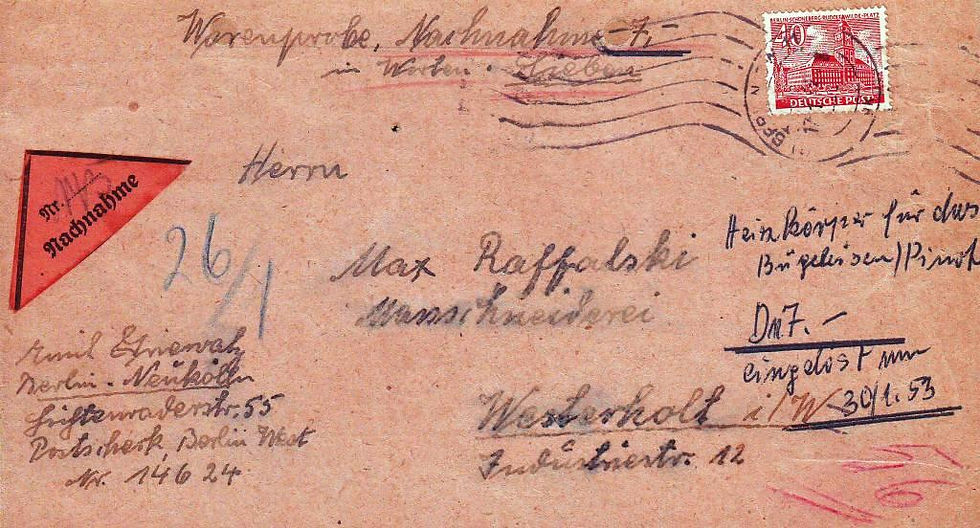 Warenprobe, Nachnahme 7,-
in Worten: Sieben
BERLIN-SCHÖNEBERG·RUDOLF-WILDE-PLATZ
40
DEUTSCHE POST
Nr.
Nachnahme
Herrn
26/1
Max Raffalski
Massschneiderei
Westerholt i/W
Industriestr. 12
Emil
Berlin-Neukölln
Lichtenraderstr. 55
Postscheck, Berlin West
Nr. 14624
Heizkörper für das
Bügeleisen
Dm 7.-
eingelöst am
30/1.53